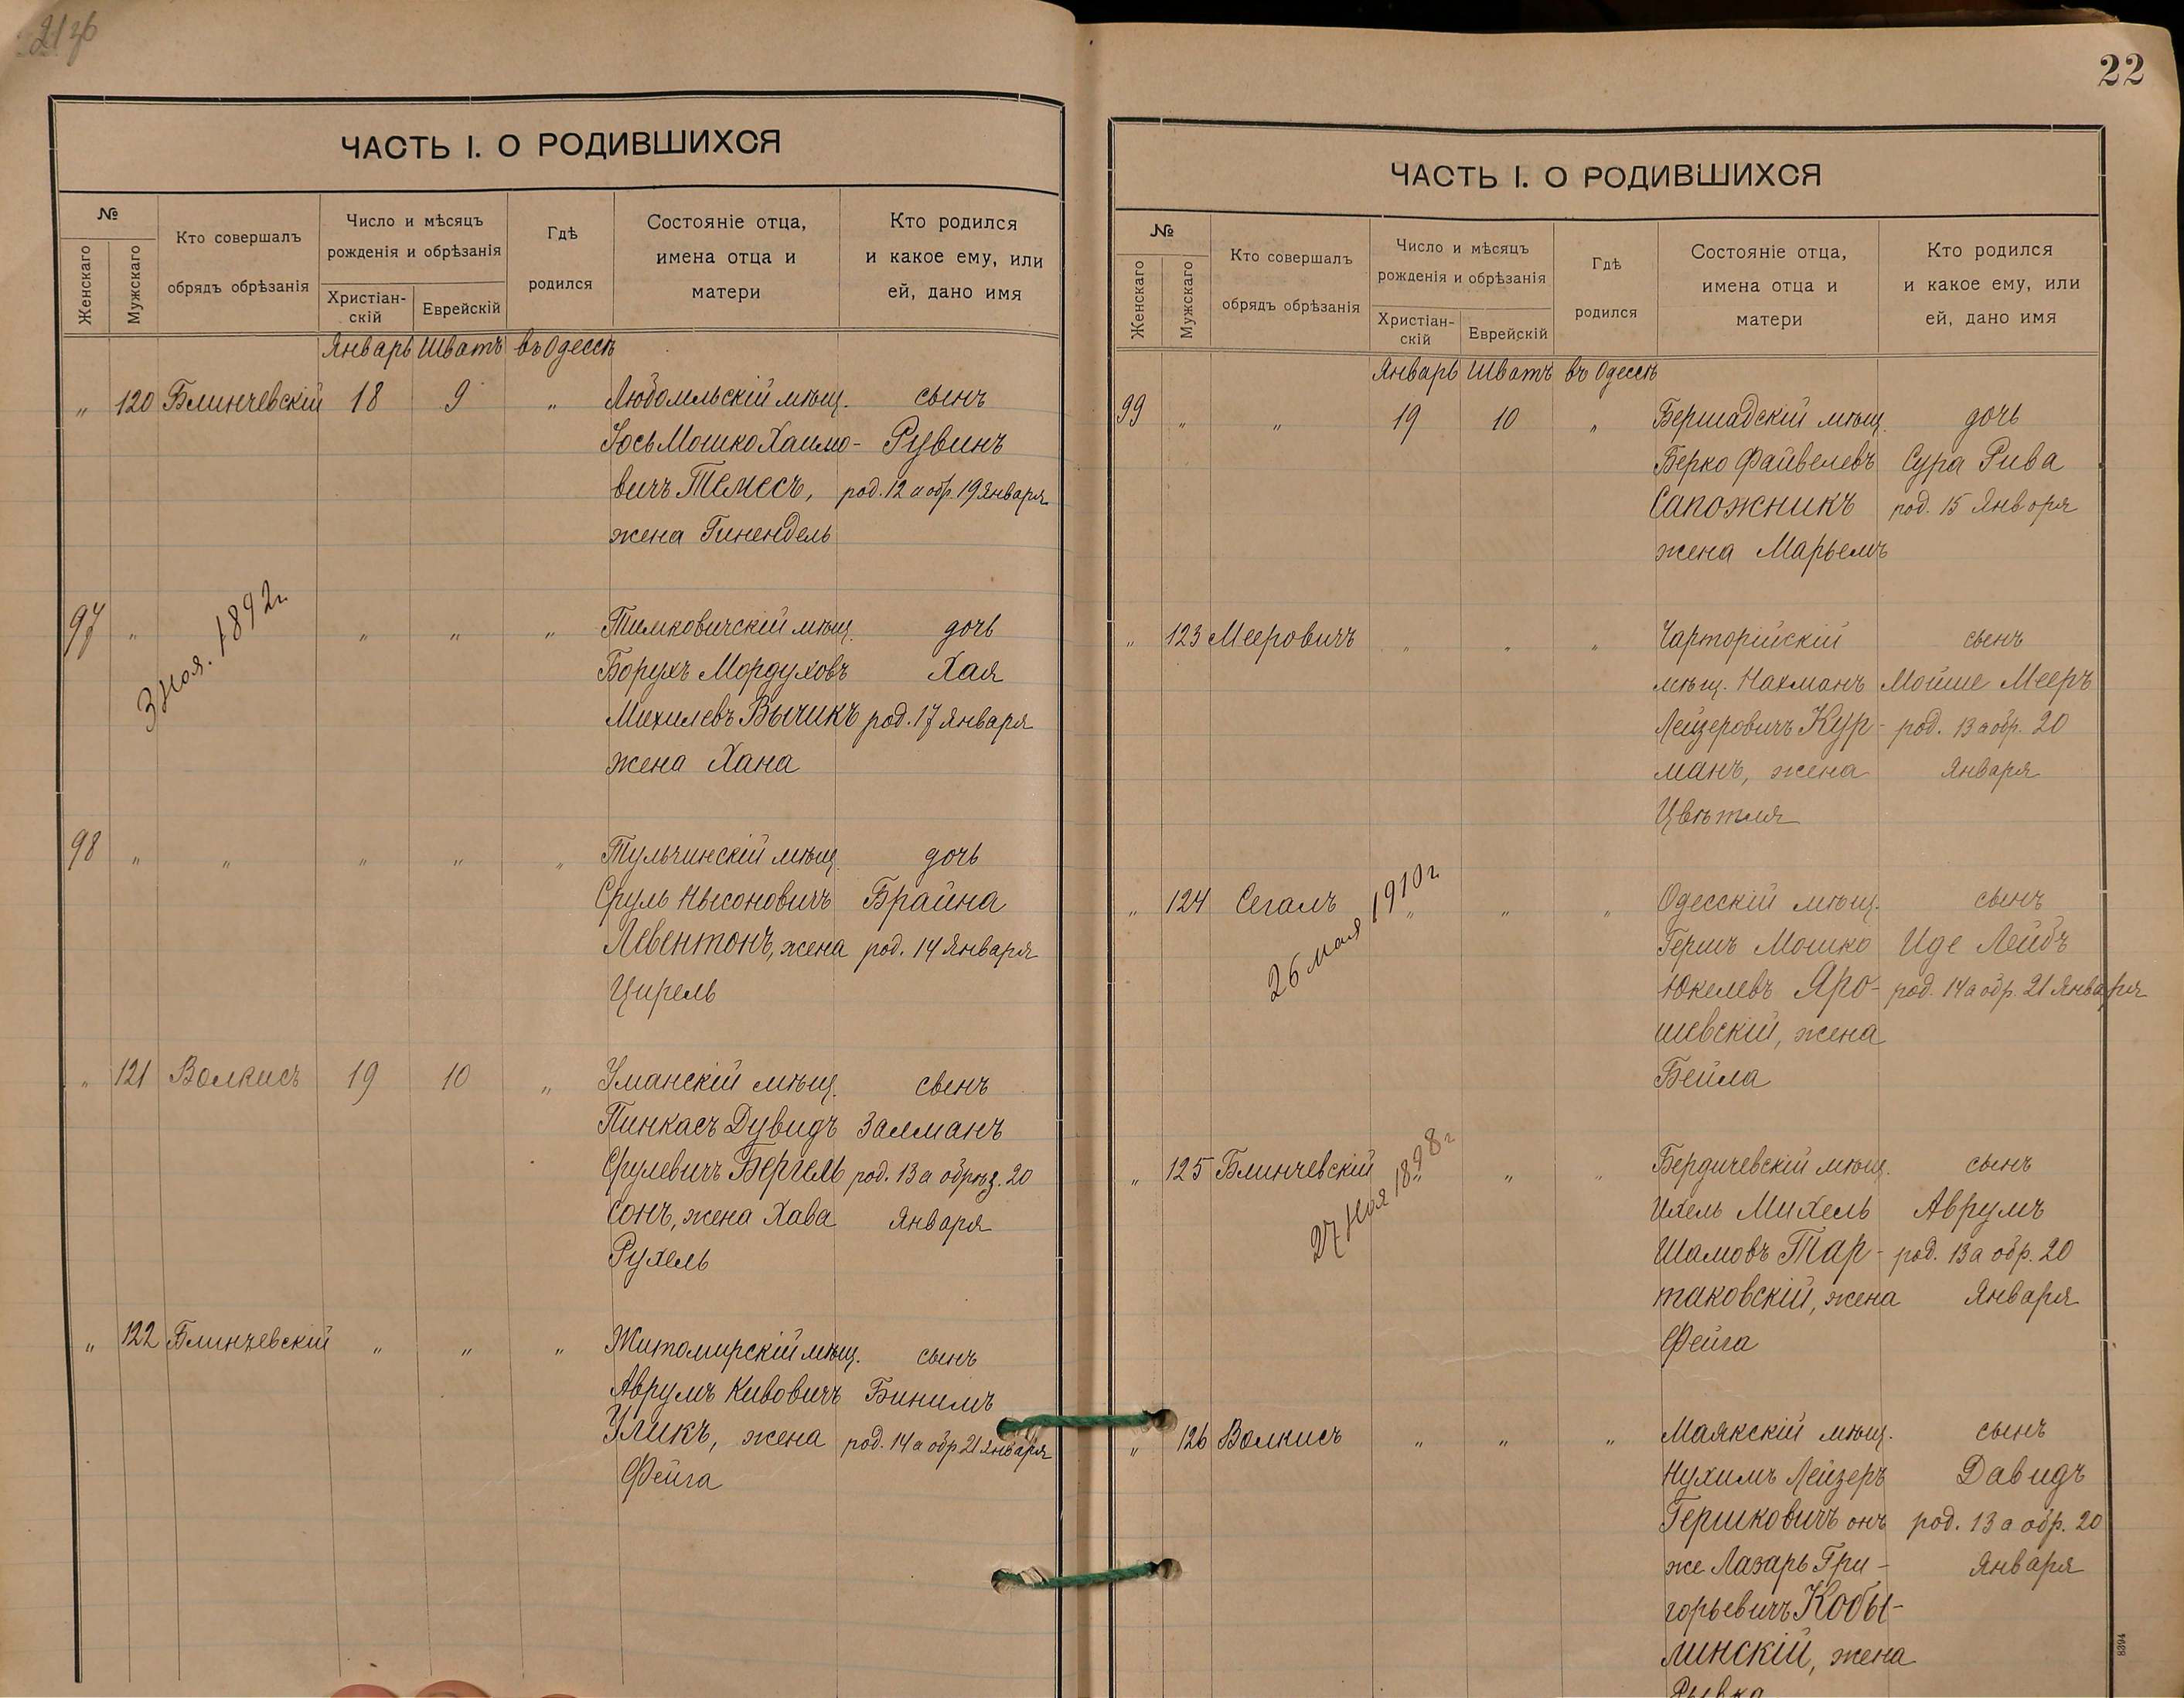 ЧАСТЬ I. О РОДИВШИХСЯ
№
Женскаго
Мужскаго
Кто совершалъ
обрядъ обрѣзанія
Число и мѣсяцъ
рожденія и обрѣзанія
Христіан-
скій
Еврейскій
Гдѣ
родился
Состояніе отца,
имена отца и
матери
Кто родился
и какое ему, или
ей, дано имя
Январь Шватъ въ Одессѣ
„ 120 Блинчевскій 18 9 „ Любомльскій мѣщ. сынъ
Іось Мошко Хаимо- Рувинъ
вичъ Темесъ, род. 12 а обр. 19 Января
жена Гинендель
97 „ 3 Ноя. 1892 г. „ „ „ Тимковичскій мѣщ. дочь
Борухъ Мордуховъ Хая
Михилевъ Вычикъ род. 17 Января
жена Хана
98 „ „ „ „ „ Тульчинскій мѣщ. дочь
Сруль Нысоновичъ Брайна
Левентонъ, жена род. 14 Января
Цирель
„ 121 Волкисъ 19 10 „ Уманскій мѣщ. сынъ
Пинкасъ Дувидъ Залманъ
Срулевичъ Бергель род. 13 а обрѣз. 20
сонъ, жена Хава Января
Рухель
„ 122 Блинчевскій „ „ „ Житомирскій мѣщ. сынъ
Аврумъ Кивовичъ Бинимъ
Уликъ, жена род. 14 а обр. 21 Января
Фейга
22
ЧАСТЬ I. О РОДИВШИХСЯ
№
Женскаго
Мужскаго
Кто совершалъ
обрядъ обрѣзанія
Число и мѣсяцъ
рожденія и обрѣзанія
Христіан-
скій
Еврейскій
Гдѣ
родился
Состояніе отца,
имена отца и
матери
Кто родился
и какое ему, или
ей, дано имя
Январь Шватъ въ Одессѣ
99 „ „ 19 10 „ Бершадскій мѣщ. дочь
Берко Файвелевъ Сура Рива
Сапожникъ род. 15 Января
жена Марьемъ
„ 123 Мееровичъ „ „ „ Чарторійскій сынъ
мѣщ. Нахманъ Мойше Мееръ
Лейзеровичъ Кур- род. 13 а обр. 20
манъ, жена Января
Цвѣтля
„ 124 Сегалъ „ „ „ Одесскій мѣщ. сынъ
26 мая 1910 г.
Гершъ Мошко Иде Лейбъ
Юкелевъ Яро- род. 14 а обр. 21 Января
шевскій, жена
Бейла
„ 125 Блинчевскій „ „ „ Бердичевскій мѣщ. сынъ
27 Ноя 1898 г
Ихель Михель Аврумъ
Шамовъ Тар- род. 13 а обр. 20
таковскій, жена Января
Фейга
„ 126 Волкисъ „ „ „ Маякскій мѣщ. сынъ
Нухимъ Лейзеръ Давидъ
Гершковичъ онъ род. 13 а обр. 20
же Лазарь Гри- Января
горьевичъ Кобы-
линскій, жена
Рывка
8394